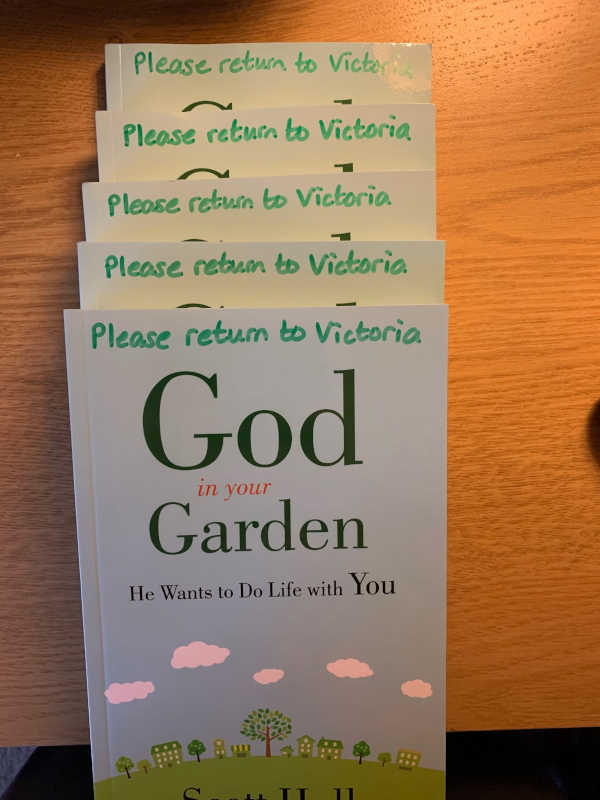 Please return to Victoria
Please return to Victoria
Please return to Victoria
Please return to Victoria
Please return to Victoria
God
in your
Garden
He Wants to Do Life with You
Scott